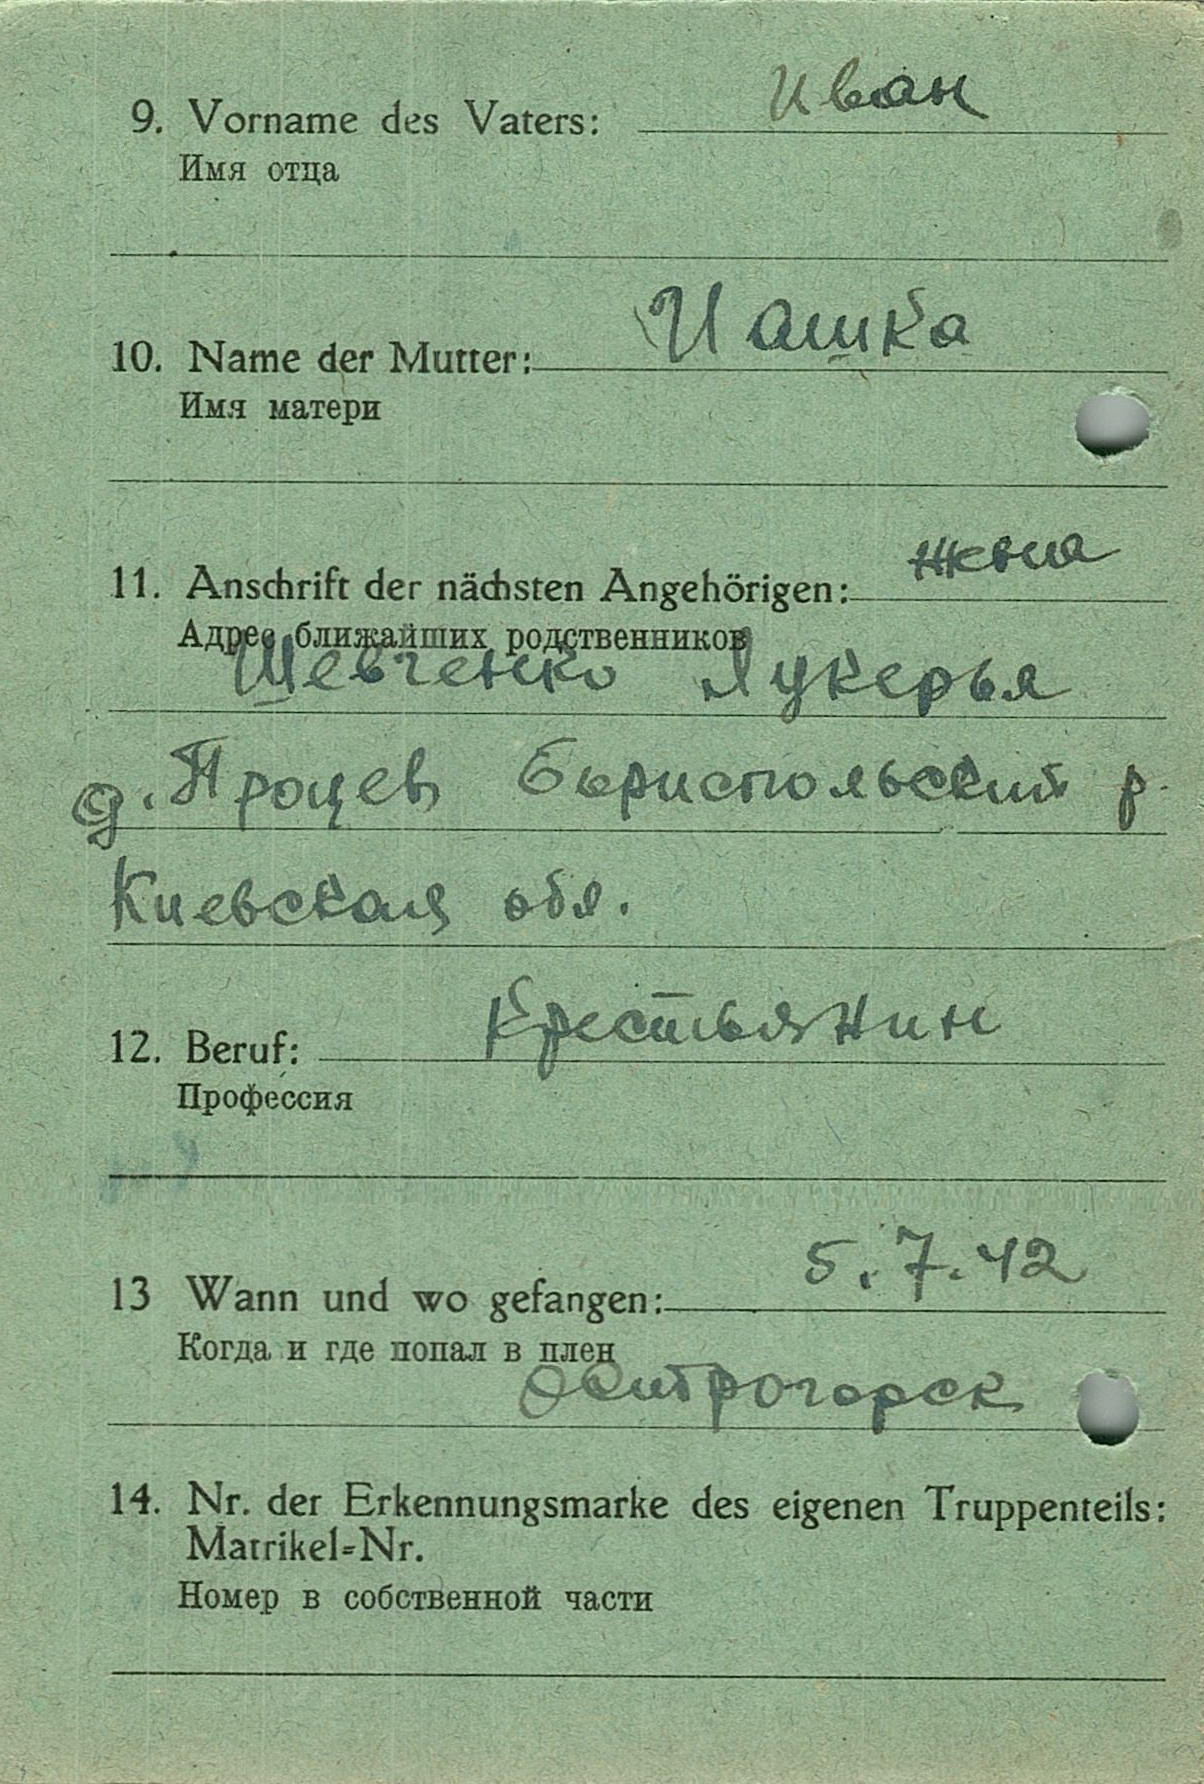 9. Vorname des Vaters: Иван
Имя отца
10. Name der Mutter: Иашка
Имя матери
11. Anschrift der nächsten Angehörigen: жена
Адрес ближайших родственников
Шевченко Лукерья
д. Процев Бориспольский р.
Киевская обл.
12. Beruf: Крестьянин
Профессия
13 Wann und wo gefangen: 5.7.42
Когда и где попал в плен
Острогорск
14. Nr. der Erkennungsmarke des eigenen Truppenteils:
Matrikel-Nr.
Номер в собственной части